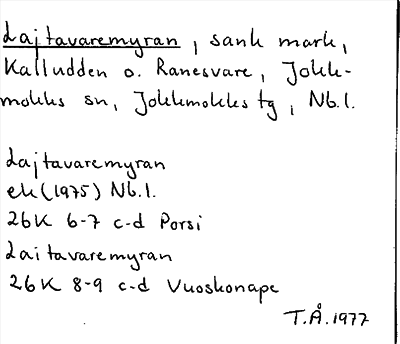 Lajtavaremyran, sank mark,
Kalludden o. Ranesvare, Jokk-
mokks sn, Jokkmokks tg, Nb.l.
Lajtavaremyran
ek(1975) Nb.l.
26K 6-7 c-d Porsi
Laitavaremyran
26K 8-9 c-d Vuoskonape
T.Å.1977